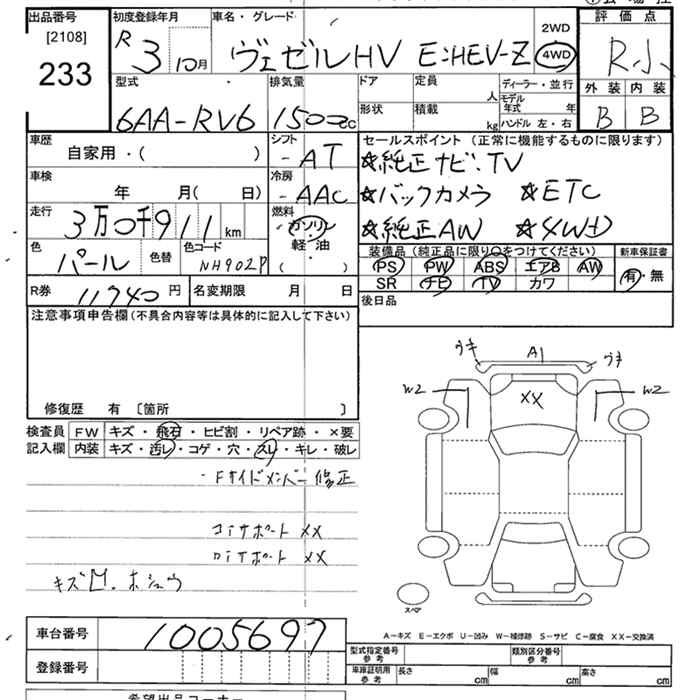 出品番号 初度登録年月 車名・グレード 評価点
[2108] R 3 10月 ヴェゼルHV E:HEV-Z 2WD 4WD R小
233
型式 排気量 ドア 定員 人 ディーラー・並行 外装 内装
6AA-RV6 1500cc 形状 積載 kg モデル年式 年 B B
ハンドル 左・右
車歴 シフト セールスポイント (正常に機能するものに限ります)
自家用・( ) -AT ☆純正ナビ:TV
車検 冷房 ☆バックカメラ ☆ETC
年 月( 日) -AAC
走行 燃料 ☆純正AW ☆4WD
3万0千911km ガソリン
色 パール 色替 色コード NH902P 軽油 装備品 (純正品に限り〇をつけてください) 新車保証書
( ・ ) PS PW ABS エアB AW 有・無
R券 11740円 名変期限 月 日 SR ナビ TV カワ
後日品
注意事項申告欄(不具合内容等は具体的に記入して下さい)
修復歴 有 〔箇所 〕
ウキ A1 ウキ
W2 XX W2
検査員 FW キズ・飛石・ヒビ割・リペア跡・×要
記入欄 内装 キズ・汚レ・コゲ・穴・スレ・キレ・破レ
-Fサイドメンバー修正
コアサポート XX
ロアサポート XX
キズ
スペア
車台番号 1005697
A-キズ E-エクボ U-凹み W-補修跡 S-サビ C-腐食 XX-交換済
登録番号 型式指定番号 参考 類別区分番号 参考
車庫証明用 参考 長さ cm 幅 cm 高さ cm
希望出品コーナー